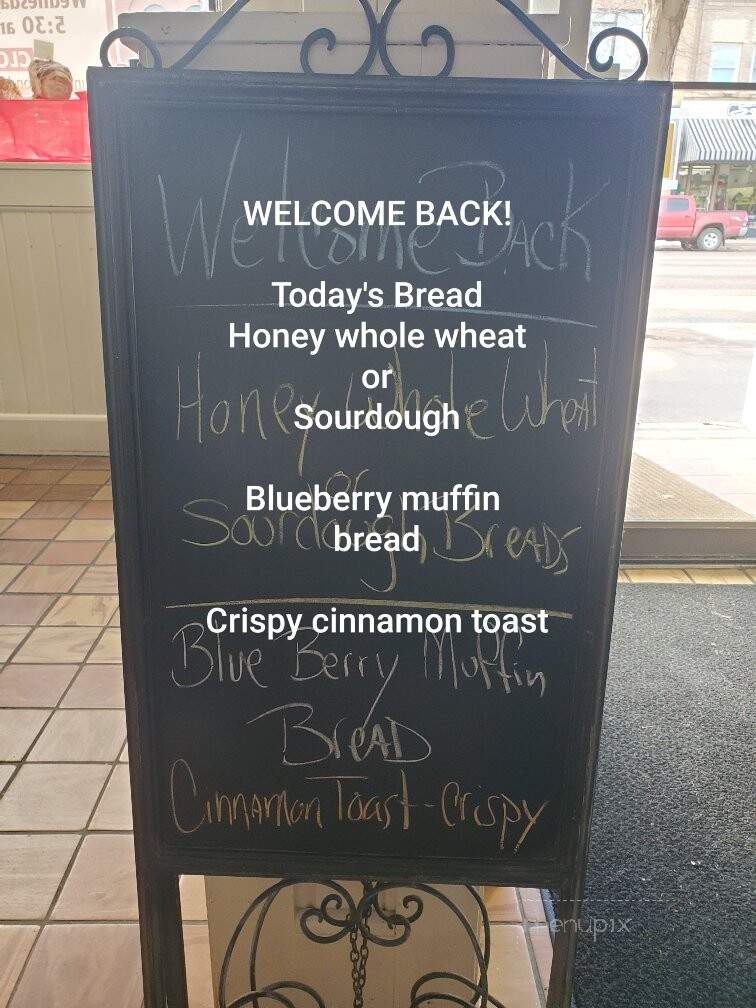 Wednesda
5:30 a
CLO
WELCOME BACK!
Welcome Back
Today's Bread
Honey whole wheat
or
Sourdough
Honey Whole Wheat
or
Sourdough Breads
Blueberry muffin
bread
Crispy cinnamon toast
Blue Berry Muffin
Bread
Cinnamon Toast - Crispy
menupix